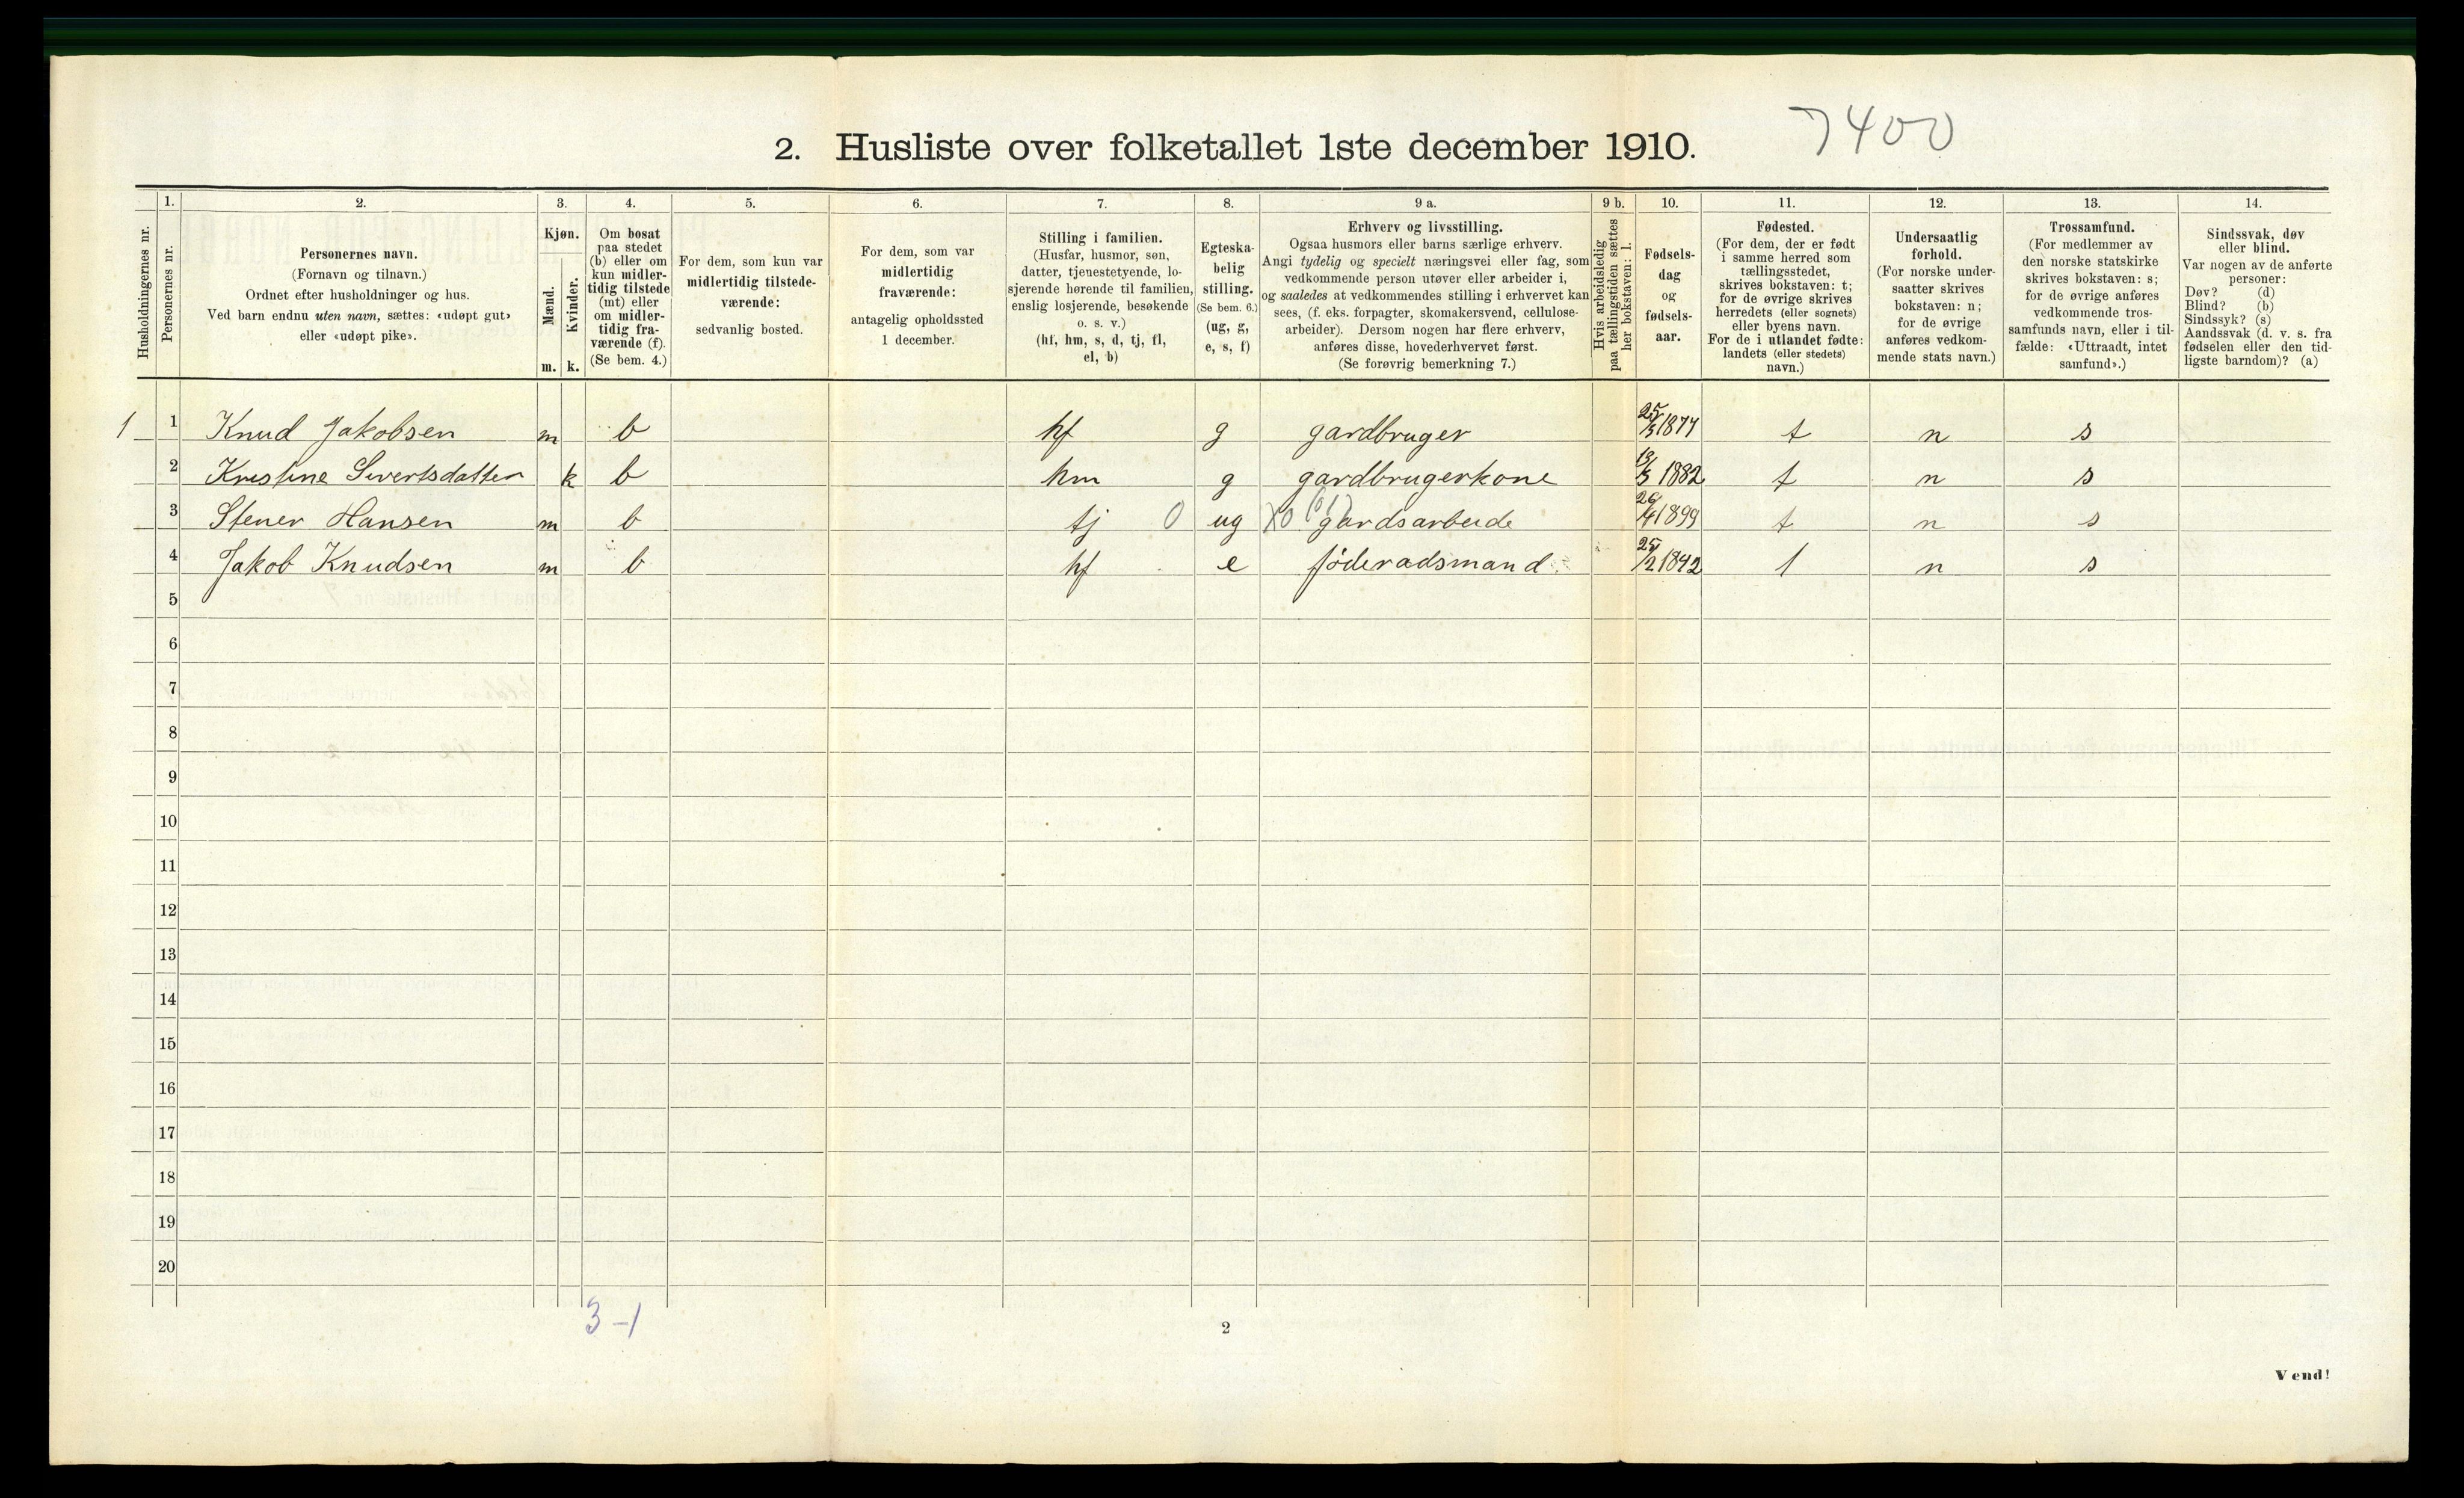 7400
2. Husliste over folketallet 1ste december 1910.
Husholdningernes nr.
1.
Personernes nr.
2.
Personernes navn.
(Fornavn og tilnavn.)
Ordnet efter husholdninger og hus.
Ved barn endnu uten navn, sættes: «udøpt gut»
eller «udøpt pike».
3.
Kjøn.
Mænd.
Kvinder.
m. k.
4.
Om bosat
paa stedet
(b) eller om
kun midler-
tidig tilstede
(mt) eller
om midler-
tidig fra-
værende (f).
(Se bem. 4.)
5.
For dem, som kun var
midlertidig tilstede-
værende:
sedvanlig bosted.
6.
For dem, som var
midlertidig
fraværende:
antagelig opholdssted
1 december.
7.
Stilling i familien.
(Husfar, husmor, søn,
datter, tjenestetyende, lo-
sjerende hørende til familien,
enslig losjerende, besøkende
o. s. v.)
(hf, hm, s, d, tj, fl,
el, b)
8.
Egteska-
belig
stilling.
(Se bem. 6.)
(ug, g,
e, s, f)
9 a.
Erhverv og livsstilling.
Ogsaa husmors eller barns særlige erhverv.
Angi tydelig og specielt næringsvei eller fag, som
vedkommende person utøver eller arbeider i,
og saaledes at vedkommendes stilling i erhvervet kan
sees, (f. eks. forpagter, skomakersvend, cellulose-
arbeider). Dersom nogen har flere erhverv,
anføres disse, hovederhvervet først.
(Se forøvrig bemerkning 7.)
9 b.
Hvis arbeidsledig
paa tællingstiden sættes
her bokstaven: l.
10.
Fødsels-
dag
og
fødsels-
aar.
11.
Fødested.
(For dem, der er født
i samme herred som
tællingsstedet,
skrives bokstaven: t;
for de øvrige skrives
herredets (eller sognets)
eller byens navn.
For de i utlandet fødte:
landets (eller stedets)
navn.)
12.
Undersaatlig
forhold.
(For norske under-
saatter skrives
bokstaven: n;
for de øvrige
anføres vedkom-
mende stats navn.)
13.
Trossamfund.
(For medlemmer av
den norske statskirke
skrives bokstaven: s;
for de øvrige anføres
vedkommende tros-
samfunds navn, eller i til-
fælde: «Uttraadt, intet
samfund».)
14.
Sindssvak, døv
eller blind.
Var nogen av de anførte
personer:
Døv? (d)
Blind? (b)
Sindssyk? (s)
Aandssvak (d. v. s. fra
fødselen eller den tid-
ligste barndom)? (a)
1 1 Knud Jakobsen m b hf g gardbruger 25/5 1877 t n s
2 Kristine Sivertsdatter k b hm g gardbrugerkone 13/3 1882 t n s
3 Stener Hansen m b tj 0 ug X0 gardsarbeide 26/4 1899 t n s
4 Jakob Knudsen m b hf e føderadsmand 25/2 1842 t n s
5
6
7
8
9
10
11
12
13
14
15
16
17
18
19
20
3-1
2
Vend!